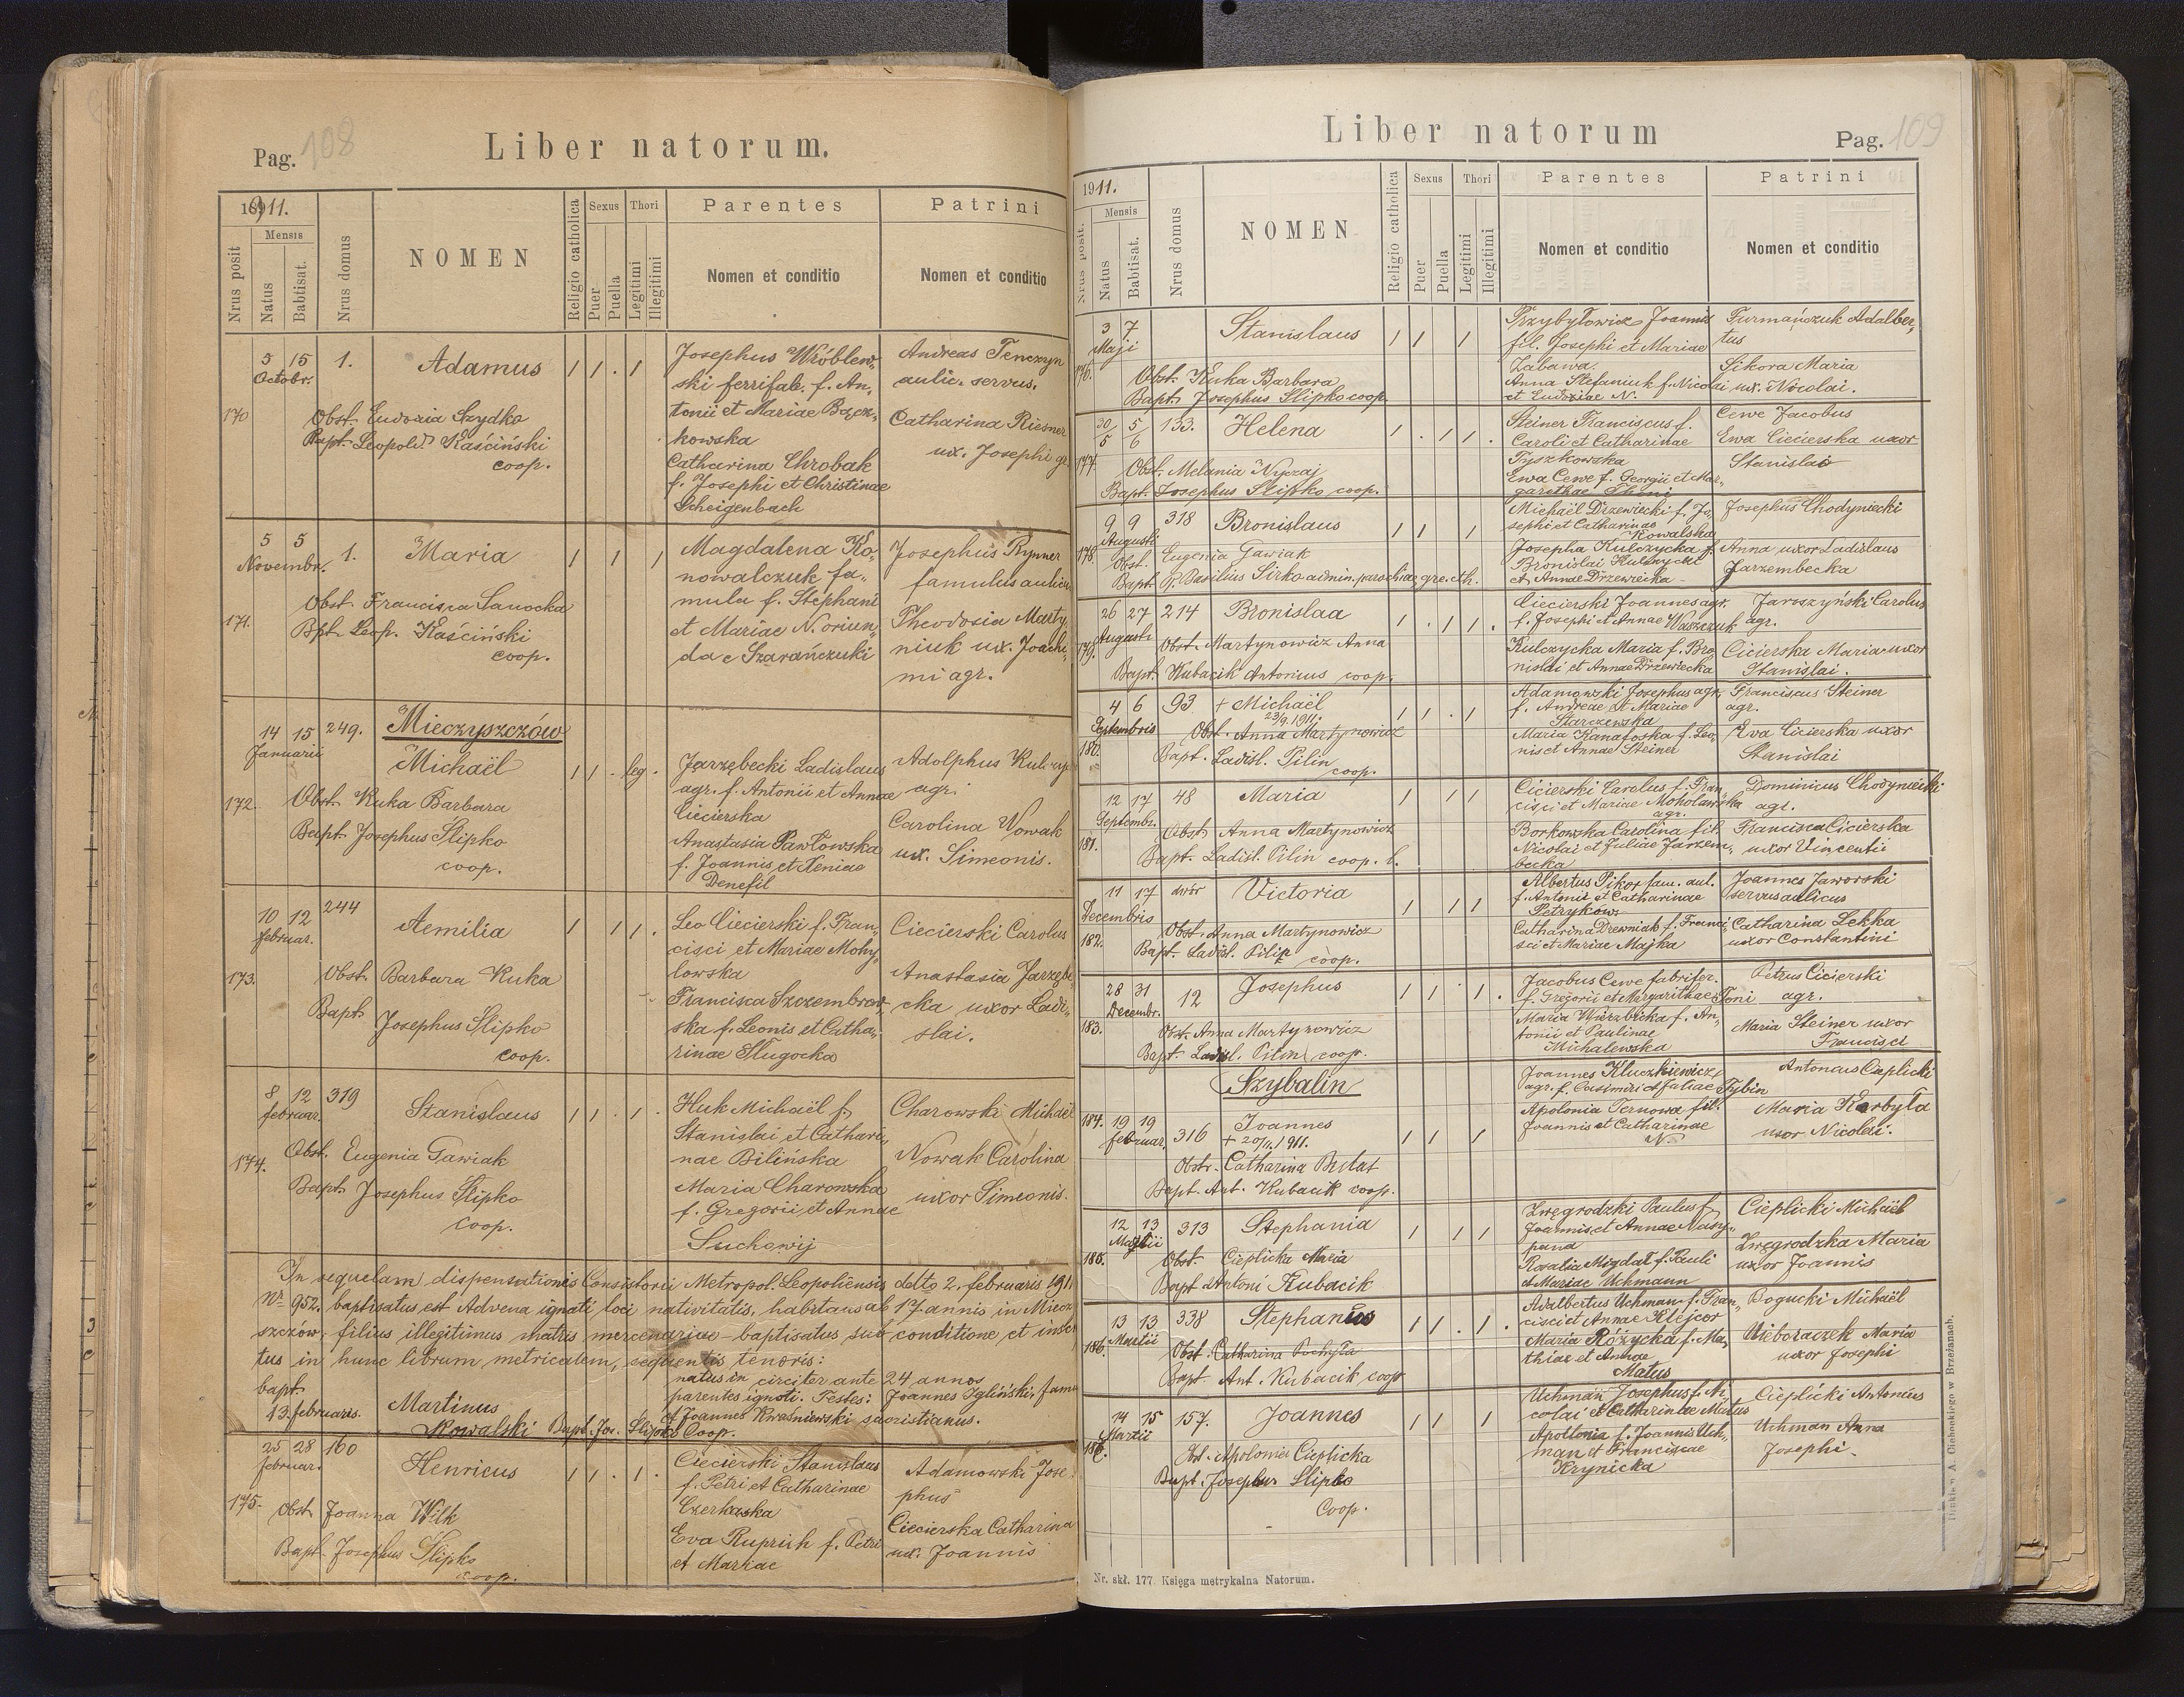 Pag. 108
Liber natorum.
1911.
Nrus posit
Mensis
Natus
Babtisat.
Nrus domus
NOMEN
Religio catholica
Sexus
Puer
Puella
Thori
Legitimi
Illegitimi
Parentes
Nomen et conditio
Patrini
Nomen et conditio
170
5 15 1. Adamus 1 1 . 1
Octobr.
Obst. Eudoxia Szydko
Bapt. Leopold. Kaściński
coop.
Josephus Wróblew„
ski ferrifab. f. An„
tonii et Mariae Bącz„
kowska
Catharina Chrobak
f. Josephi et Christinae
Scheigenbach
Andreas Tenczyn
aulic. servus.
Catharina Riesner
ux. Josephi gr
171.
5 5 1. Maria 1 1 1
Novembr.
Obst. Francisca Sanocka
Bpt. Leop. Kaściński
coop.
Magdalena Ko„
nowalczuk fa„
mula f. Stephani
et Mariae N. oriun„
da e Szarańczuki
Josephus Rynner
famulus aulicus
Theodosia Marty
niuk ux. Joachi„
mi agr.
Mieczyszczów
172.
14 15 249. Michaël 1 1 . leg .
Januarii
Obst. Kuka Barbara
Bapt. Josephus Slipko
coop.
Jarzębecki Ladislaus
agr. f. Antonii et Annae
Ciecierska
Anastasia Pawłowska
f. Joannis et Xeniae
Denefil
Adolphus Kulczyc
agr.
Carolina Nowak
ux. Simeonis.
173.
10 12 244 Aemilia 1 1 1 .
februar.
Obst. Barbara Kuka
Bapt.
Josephus Slipko
coop.
Leo Ciecierski f. Fran„
cisci et Mariae Mohy„
lowska
Francisca Szczembrow„
ska f. Leonis et Catha„
rinae Sługocka
Ciecierski Carolus
Anastasia Jarzębe
cka uxor Ladi„
slai.
174.
8 12 319 Stanislaus 1 1 . 1 .
februar.
Obst. Eugenia Gawiak
Bapt. Josephus Slipko
coop.
Huk Michaël f.
Stanislai et Cathari„
nae Bilińska
Maria Charowska
f. Gregorii et Annae
Suchowij
Charowski Michaël
Nowak Carolina
uxor Simeonis.
In sequelam dispensationis Consistorii Metropol. Leopoliensis ddto 2. februaris 1911
Nr 952. baptisatus est Advena ignoti loci nativitatis, habitans ab 17 annis in Miecz
szczów, filius illegitimus matris mercenariae – baptisatus sub conditione et inser
tus in hunc librum metricalem, sequentis tenoris:
bapt.
13. februaris.
Martinus
Kowalski Bapt. Jos. Slipko Coop.
natus in circiter ante 24 annos
parentes ignoti. Testes: Joannes Igliński, famu
et Joannes Kwaśniewski sacristianus.
175.
25 28 160 Henricus 1 1 . 1 .
februar.
Obst. Joanna Wilk
Bapt. Josephus Slipko
coop.
Ciecierski Stanislaus
f. Petri et Catharinae
Czerkaska
Eva Ruprich f. Petri
et Mariae
Adamowski Jose
phus
Ciecierska Catharina
ux. Joannis
Liber natorum
Pag. 109
1911.
Nrus posit.
Mensis
Natus
Babtisat.
Nrus domus
NOMEN
Religio catholica
Sexus
Puer
Puella
Thori
Legitimi
Illegitimi
Parentes
Nomen et conditio
Patrini
Nomen et conditio
176.
3 7 Stanislaus 1 1 1
Maji
Obst. Kuka Barbara
Bapt. Josephus Slipko coop.
Przybyłowicz Joannis
fil. Josephi et Mariae
Zabawa.
Anna Stefaniuk f. Nicolai
et Eudoxiae N.
Furmańczuk Adalber„
tus
Sikora Maria
ux. Nicolai.
177.
30/5 5/6 133. Helena 1 . 1 1 .
Obst. Melania Nyczaj
Bapt. Josephus Slipko coop.
Steiner Franciscus f.
Caroli et Catharinae
Tyszkowska
Ewa Cewe f. Georgii et Mar„
garethae Thoni
Cewe Jacobus
Ewa Ciecierska uxor
Stanislai
178.
9 9 318 Bronislaus 1 1 1
Augusti
Obst. Eugenia Gawiak
Bapt. P. Basilius Sirko admin. parochiae gr. cth.
Michaël Drzewiecki f. Jo„
sephi et Catharinae
Kowalska
Josepha Kulczycka f.
Bronislai Kulczycki
et Annae Drzewiecka
Josephus Chodyniecki
Anna uxor Ladislaus
Jarzembecka
179.
26 27 214 Bronislaa 1 . 1 1 .
Augusti
Obst. Martynowicz Anna
Bapt. Kubacik Antonius coop.
Ciecierski Joannes agr.
f. Josephi et Annae Waszczuk
Kulczycka Maria f. Bro„
nislai et Annae Drzewiecka
Jaroszyński Carolus
agr.
Cicierska Maria uxor
Stanislai.
180.
4 6 93 + Michaël 1 1 . 1
Septembris
23/9. 1911.
Obst. Anna Martynowicz
Bapt. Ladisl. Pilin
coop.
Adamowski Josephus agr.
f. Andreae et Mariae
Starczewska
Maria Kanafoska f. Leo„
nis et Annae Steiner
Franciscus Steiner
agr.
Eva Cicierska uxor
Stanislai
181.
12 17 48 Maria 1 1 1
Septembr.
Obst. Anna Martynowicz
Bapt. Ladisl. Pilin coop. l.
Cicierski Carolus f. Fran„
cisci et Mariae Moholawska
agr.
Borkowska Carolina fil.
Nicolai et Juliae Jarzem„
becka
Dominicus Chodyniecki
agr.
Francisca Cicierska
uxor Vincentii
182.
11 17 dwór Victoria 1 1 1
Decembris
Obst. Anna Martynowicz
Bapt. Ladisl. Pilin coop.
Albertus Pikor fam. aul.
f. Antonii et Catharinae
Petryków.
Catharina Drewniak f. Franci„
sci et Mariae Majka
Joannes Jaworski
servus aulicus
Catharina Sekka
uxor Constantini
183.
28 31 12 Josephus 1 1 . 1 .
Decembr.
Obst. Anna Martynowicz
Bapt. Ladisl. Pilin coop.
Jacobus Cewe fabrifer.
f. Gregorii et Margarithae Toni
Maria Wierzbicka f. An„
tonii et Paulinae
Michalewska
Petrus Cicierski
agr.
Maria Steiner uxor
Francisci
Szybalin
184.
19 19 316 Joannes 1 1 1
februar.
+ 20/11. 1911.
Obstr. Catharina Bulat
Bapt. Ant. Kubacik coop.
Joannes Kluczkiewicz
agr. f. Casimiri et Juliae Tybin
Apolonia Ternowa fil.
Joannis et Catharinae
N.
Antonius Cieplicki
Maria Karbyła
uxor Nicolai.
185.
12 13 313 Stephania 1 1 1
Martii
Obst. Cieplicka Maria
Bapt. Antoni Kubacik
Zwęgrodzki Paulus f.
Joannis et Annae Nasy„
pana
Rosalia Migdał f. Pauli
et Mariae Uchmann
Cieplicki Michaël
Zwęgrodzka Maria
uxor Joannis
186.
13 13 338 Stephanus 1 1 . 1 .
Martii
Obst. Catharina Pochyła
Bapt. Ant. Kubacik coop
Adalbertus Uchman f. Fran„
cisci et Annae Klejcor
Maria Różycka f. Ma„
thiae et Annae
Matus
Bogucki Michaël
Wieboraczek Maria
uxor Josephi
186.
14 15 157. Joannes 1 1 1
Martii
Obst. Apolonia Cieplicka
Bapt. Josephus Slipko
Coop.
Uchman Josephus f. Ni„
colai et Catharinae Matus
Apollonia f. Joannis Uch„
man et Franciscae
Krynicka
Cieplicki Antonius
Uchman Anna
Josephi
Nr. skł. 177. Księga metrykalna Natorum.